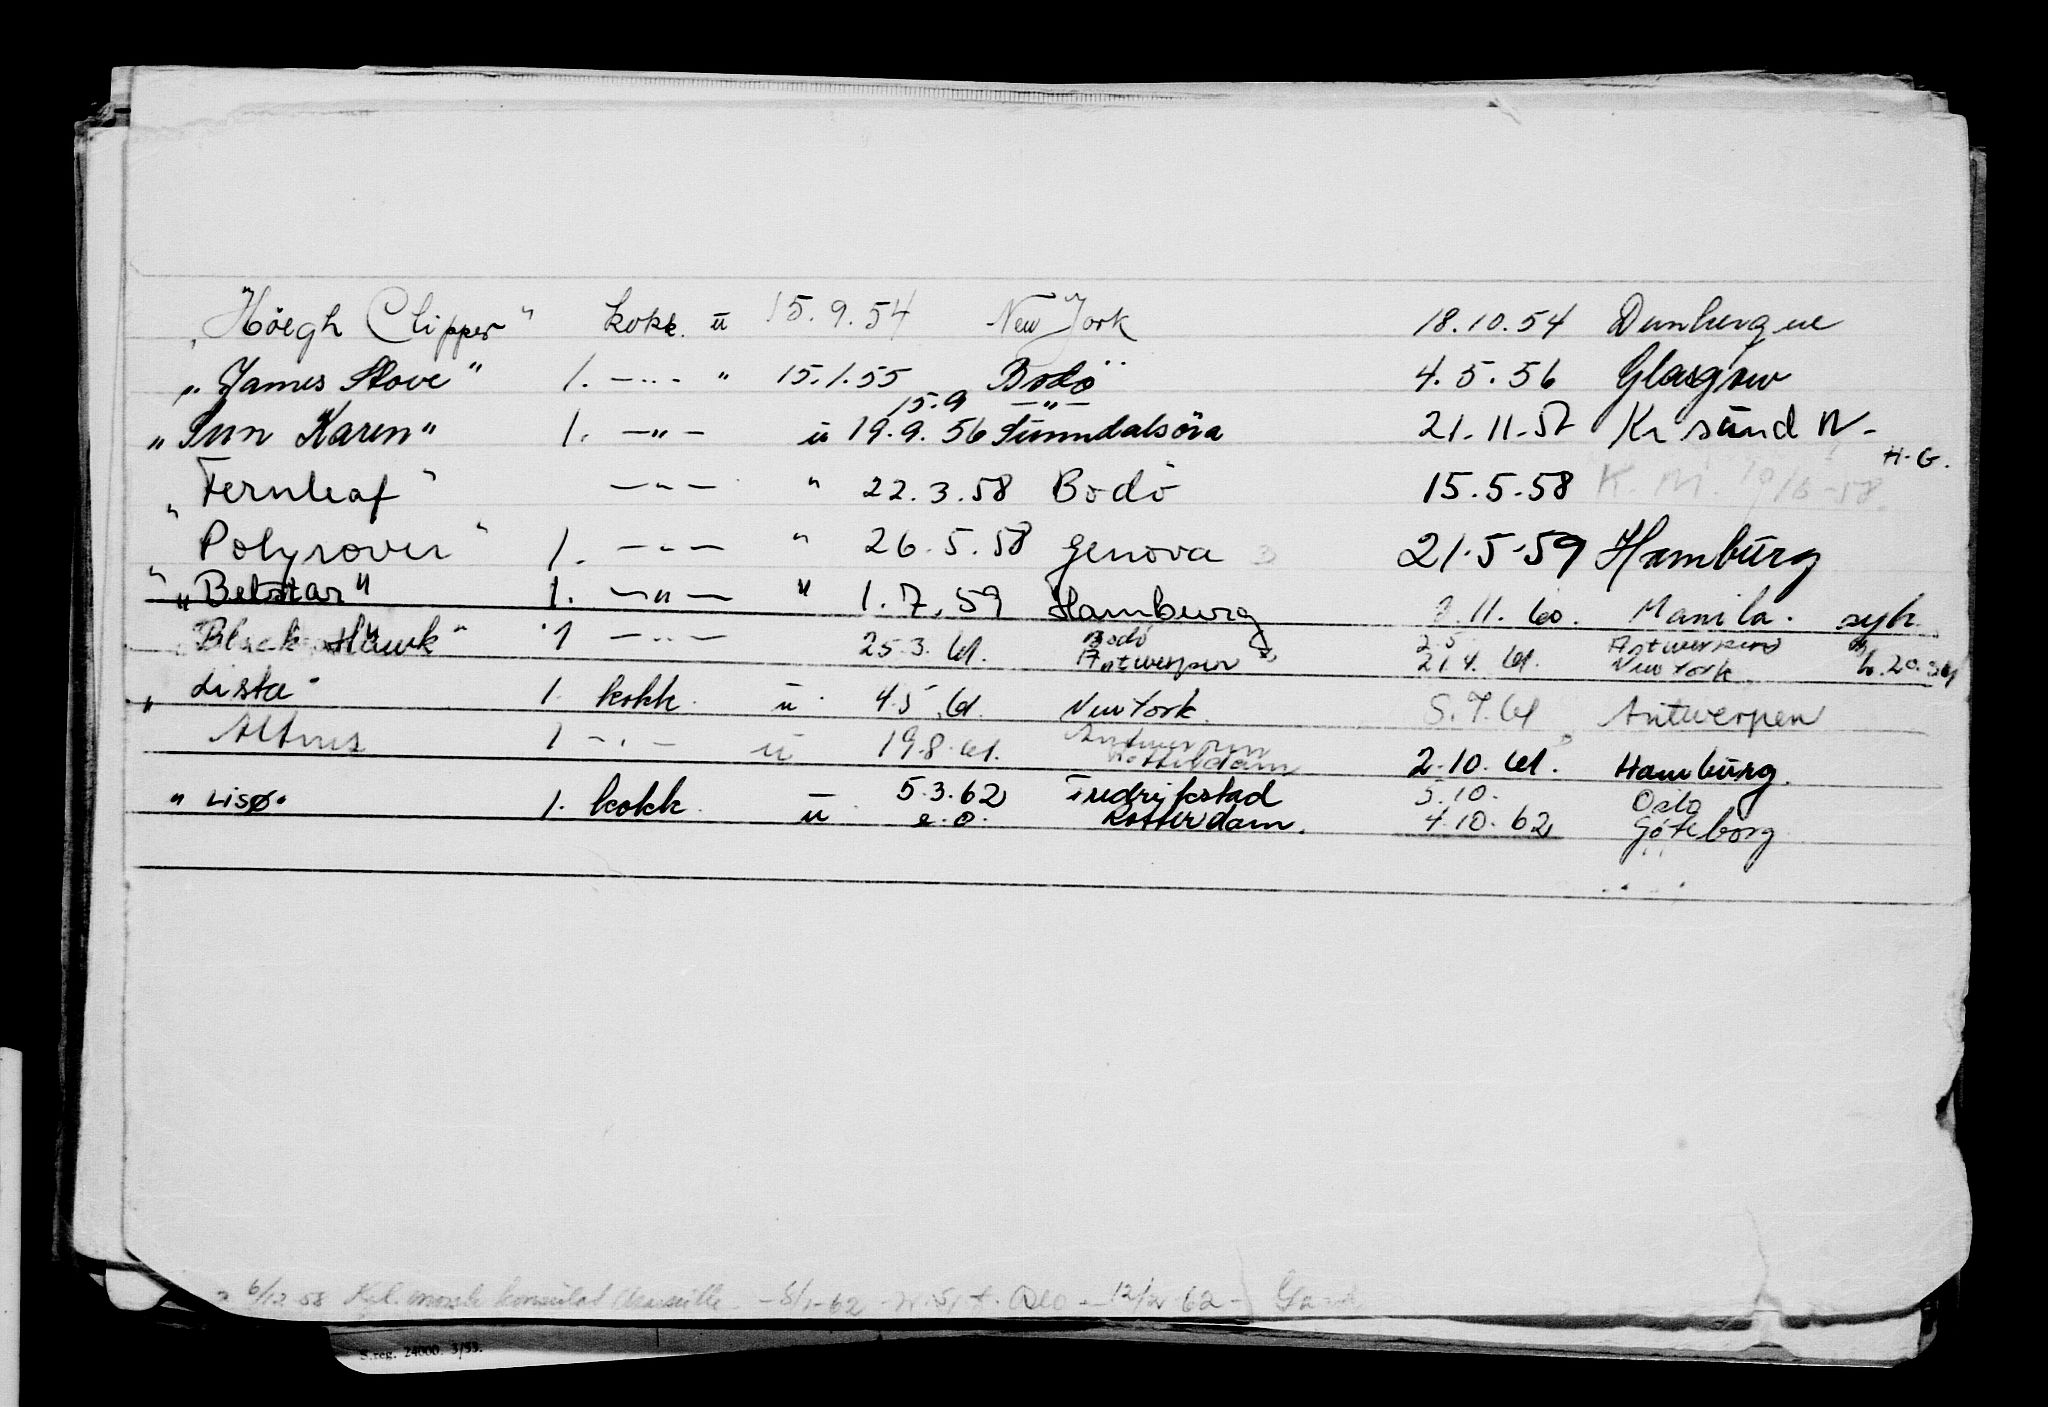 "Höegh Clipper" kokk. u 15.9.54 New York 18.10.54 Dunkerque
"James Stove" 1. —"— " 15.1.55 Bodö 4.5.56 Glasgow
15.9 —"—
"Sun Karen" 1. —"— u 19.9.56 Sunndalsöra 21.11.57 Kr sund N-
H.G.
"Fernleaf" —"— " 22.3.58 Bodö 15.5.58 K.M. 10/6-58.
"Polyrover" 1. —"— " 26.5.58 Genova 21.5.59 Hamburg
"Belstar" 1. —"— " 1.7.59 Hamburg .11.60. Manila. syk.
Bodö 2.5 Antwerpen
"Black Hawk" 1 —"— 25.3.61. Antwerpen 21.4.61. New York
"Lista" 1. kokk. u. 4.5.61. New York. 5.7.61 Antwerpen
Antwerpen
1 —"— u 19.8.61. Rotterdam 2.10.61. Hamburg.
"Lisø" 1. kokk. u. 5.3.62 Fredrikstad 5.10. Oslo
e.o. Rotterdam. 4.10.62 Göteborg
6/12 58 Kgl. norske konsulat - 62 - Oslo - 12/2 62 -
S.reg. 24000. 3/53.